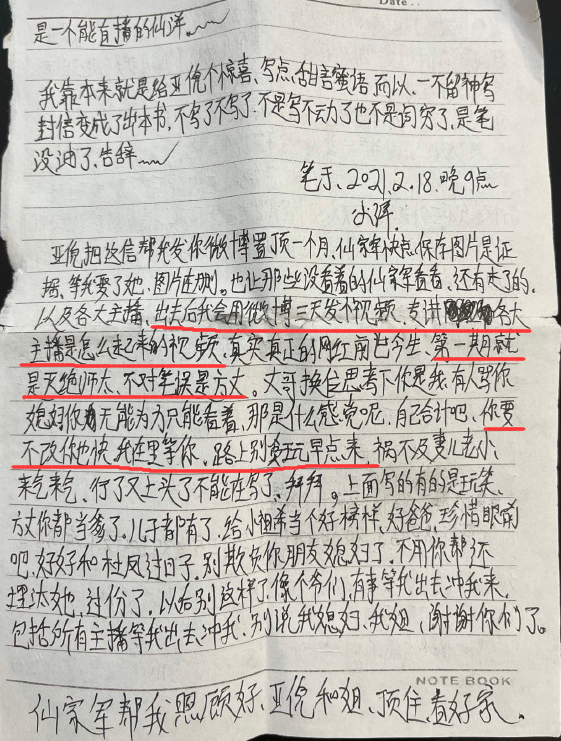 Date..
是一个能直播的仙洋。
我靠本来就是给亚倪个惊喜、写点甜言蜜语而以、一不留神写
封信变成了出本书、不写了不写了、不是写不动了也不是词穷了、是笔
没油了、告辞
笔于、2021.2.18.晚9点
小洋.
亚倪把这信帮我发你微博置顶一个月、仙家军快点保存图片是证
据、等我要了她、图片在删。也让那些没看着的仙家军看看、还有走了的。
以及各大主播、出去后我会用微博三天发个视频、专讲各大
主播是怎么起来的视频、真实真正的网红前世今生、第一期就
是灭绝师太、不对笔误是方丈。丈哥换位思考下你是我、有人骂你
媳妇你无能为力只能看着、那是什么感觉呢、自己合计吧、你要
不改你也快、我在里等你、路上别贪玩早点来、祸不及妻儿老小
来吃来吃、行了又上头了不能在写了、拜拜。上面写的有的是玩笑、
方丈你都当爹了、儿子都有了、给小祖希当个好榜样、好爸爸、珍惜眼前
吧、好好和杜凤过日子、别欺负你朋友媳妇了、不用你帮还
埋汰她、过份了、以后别这样了、像个爷们、有事等我出去冲我来、
包括所有主播等我出去冲我、别说我媳妇、我姐、谢谢你们了。
NOTE BOOK
仙家军帮我照顾好、亚倪和姐、顶住、看好家、